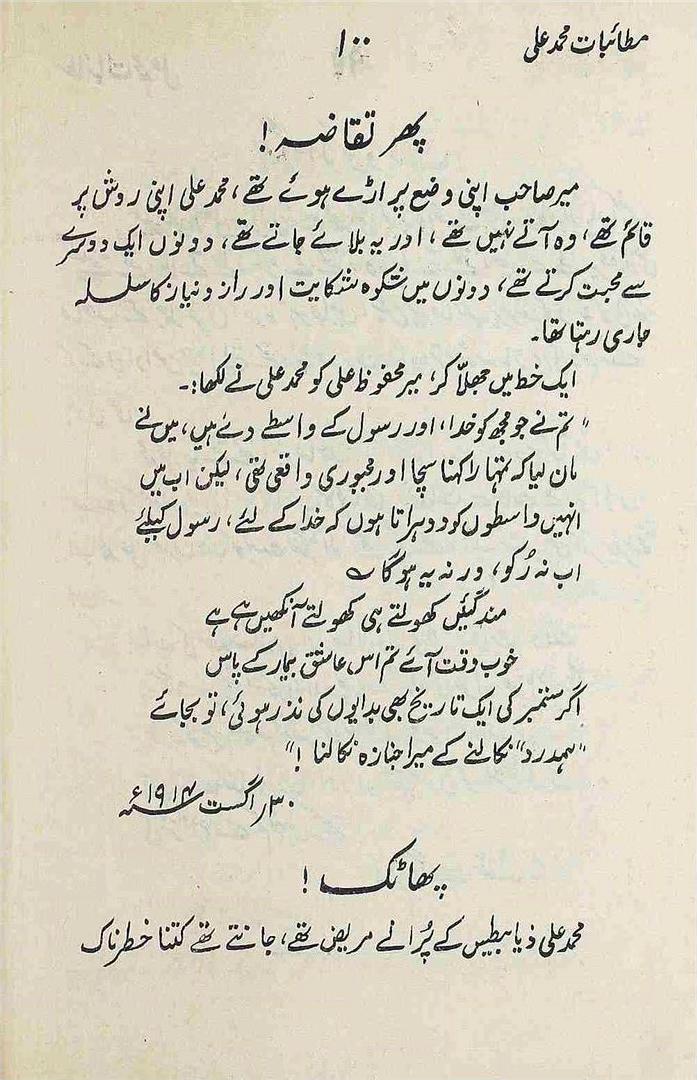 مطائبات محمد علی
۱۰۰
پھر تقاضہ !
میر صاحب اپنی وضع پر اڑے ہوئے تھے، محمد علی اپنی روش پر
قائم تھے، وہ آتے نہیں تھے، اور یہ بلائے جاتے تھے، دونوں ایک دوسرے
سے محبت کرتے تھے، دونوں میں شکوہ شکایت اور راز و نیاز کا سلسلہ
جاری رہتا تھا۔
ایک خط میں جھلّا کر، میر محفوظ علی کو محمد علی نے لکھا:۔
"تم نے جو مجھ کو خدا، اور رسول کے واسطے دئے ہیں، میں نے
مان لیا کہ تمہارا کہنا سچا اور مجبوری واقعی تھی، لیکن اب میں
انہیں واسطوں کو دوہراتا ہوں کہ خدا کے لئے، رسول کیلئے
اب نہ رُکو، ورنہ یہ ہوگا ؎
مند گئیں کھولتے ہی کھولتے آنکھیں ہے ہے
خوب وقت آئے تم اس عاشق بیمار کے پاس
اگر ستمبر کی ایک تاریخ بھی بدایوں کی نذر ہوئی، تو بجائے
"ہمدرد" نکالنے کے میرا جنازہ نکالنا !"
۳۰ر اگست ۱۹۱۲ء
پھاٹک !
محمد علی ذیابیطیس کے پُرانے مریض تھے، جانتے تھے کتنا خطرناک